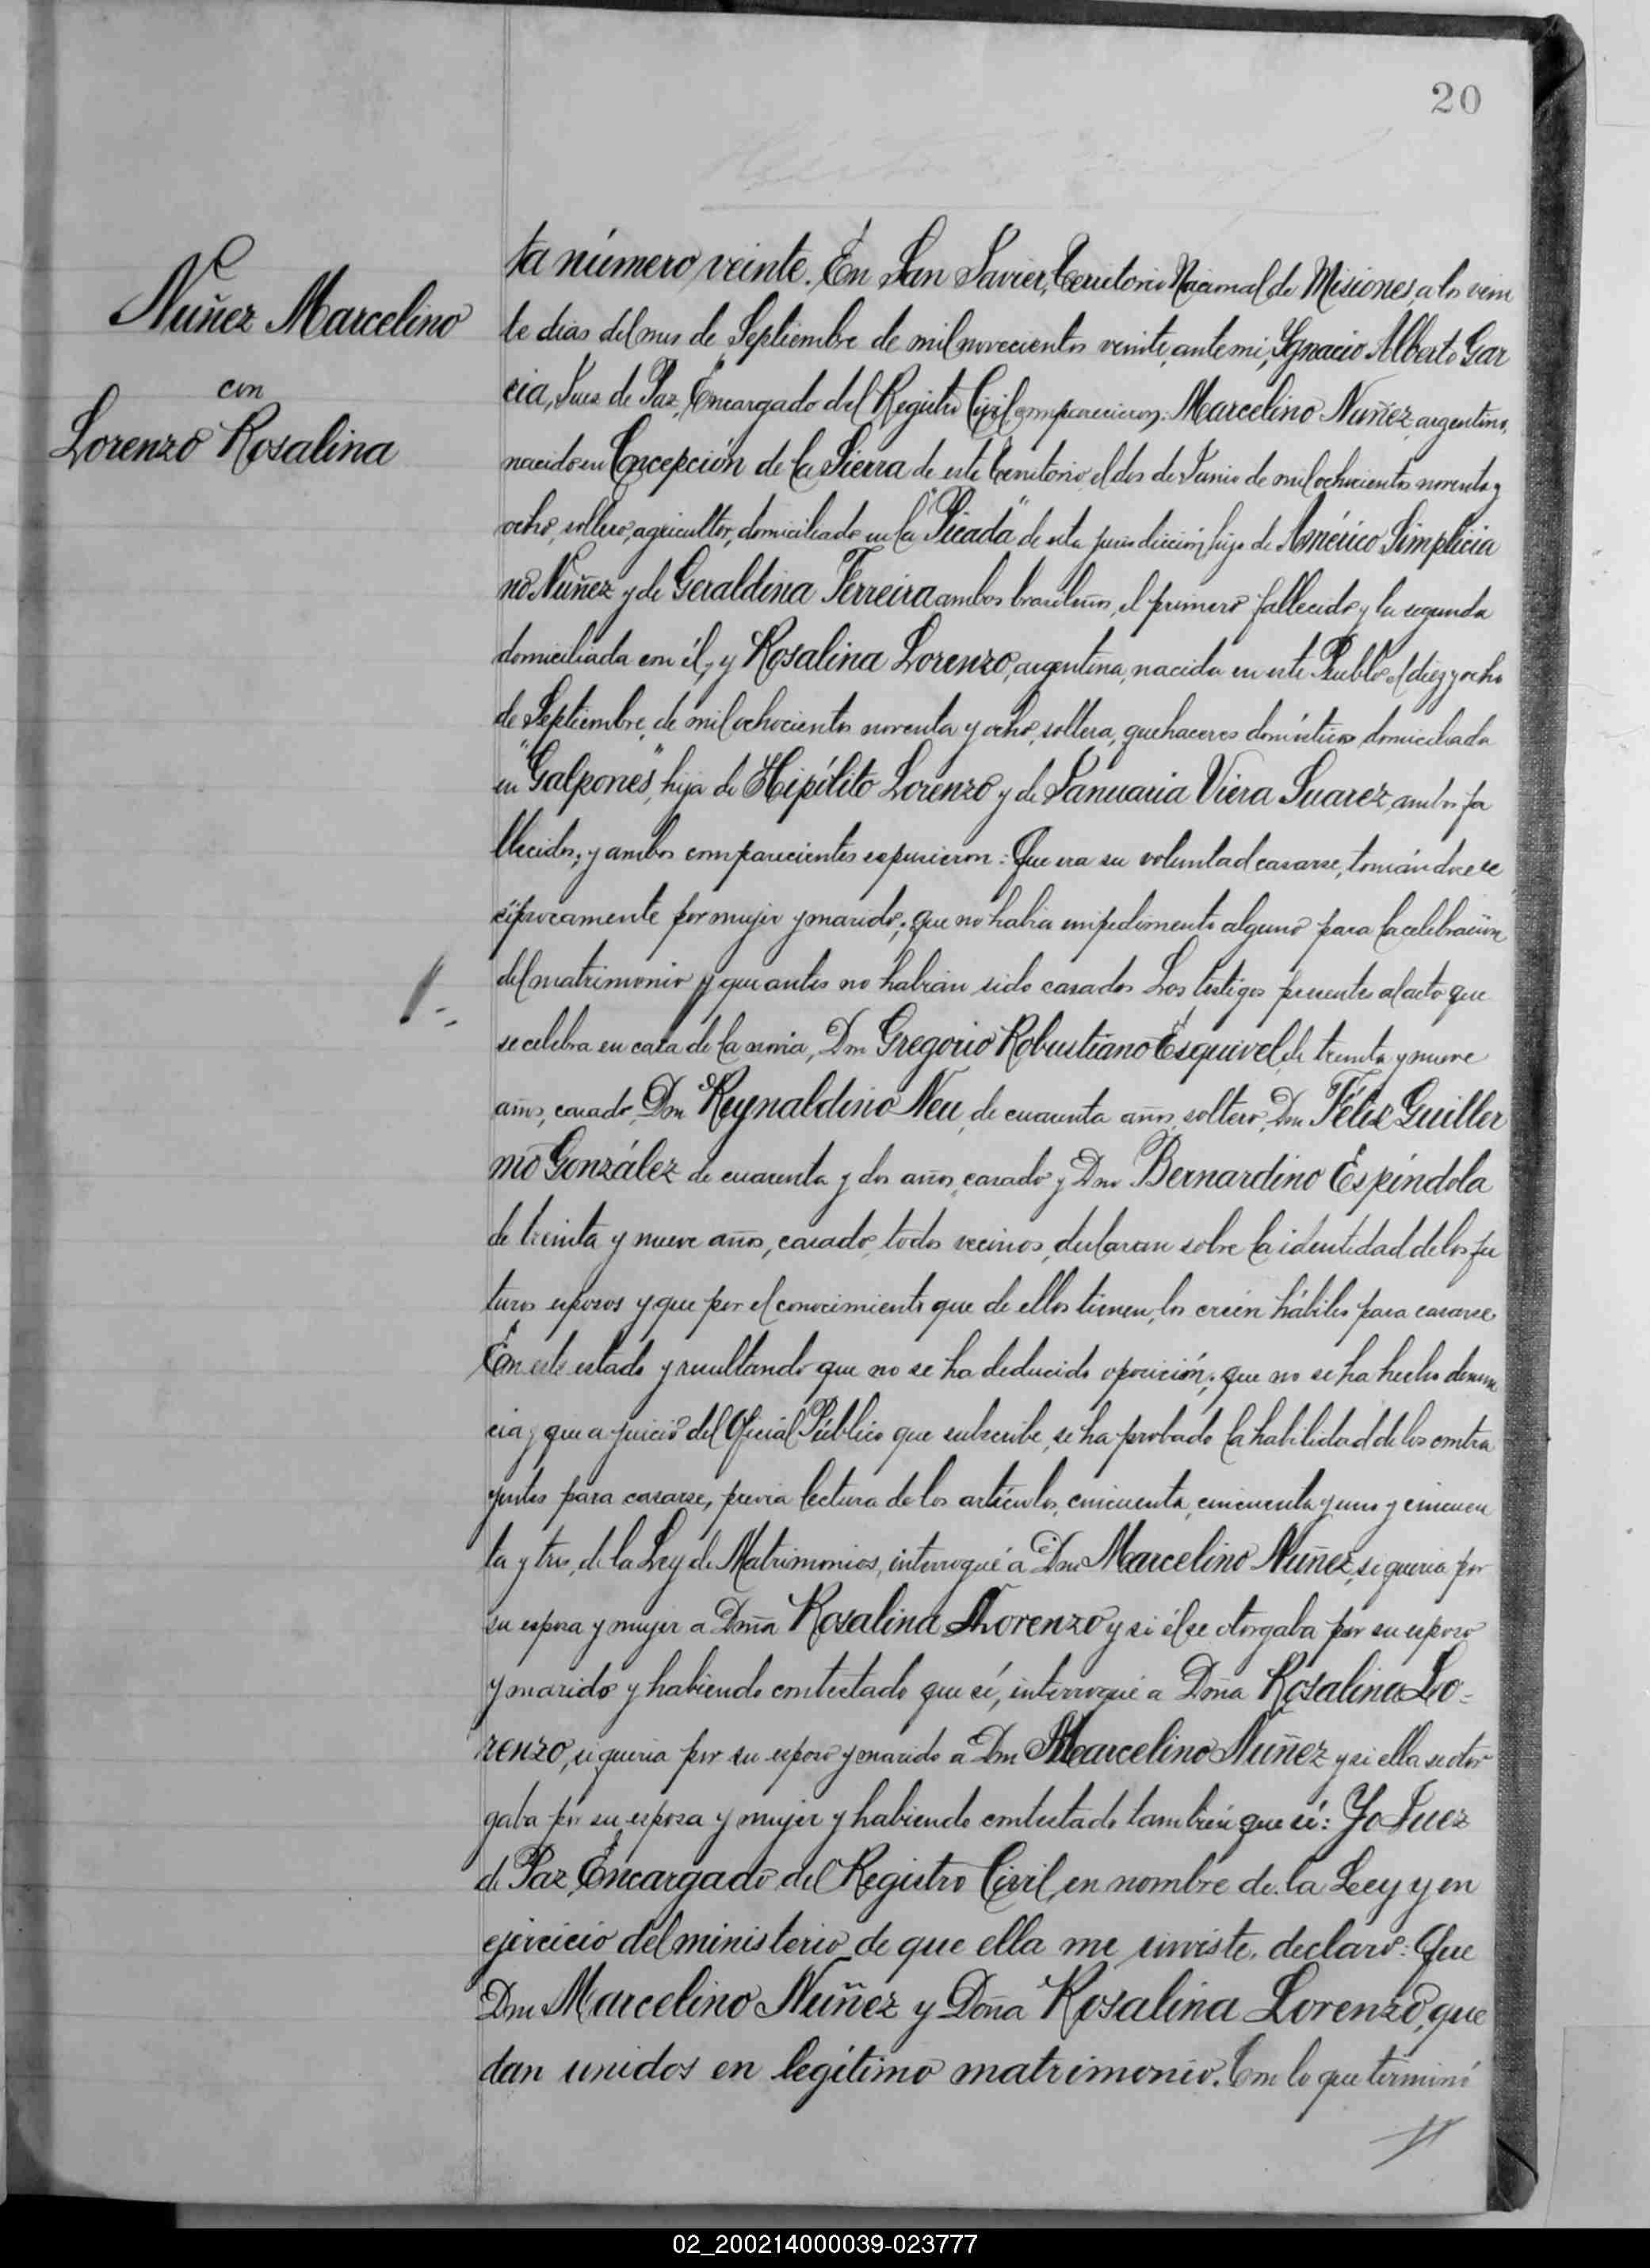 20
Nuñez Marcelino
con
Lorenzo Rosalina
ta número veinte. En San Javier, Territorio Nacional de Misiones, a los vein
te dias del mes de Septiembre de mil novecientos veinte, ante mi, Ygnacio Alberto Gar
cia, Juez de Paz, Encargado del Registro Civil comparecieron: Marcelino Nuñez, argentino,
nacido en Concepción de la Sierra de este Territorio el dos de Junio de mil ochocientos noventa y
ocho, soltero, agricultor, domiciliado en la "Picada" de esta jurisdicción, hijo de Américo Simplicia
no Nuñez y de Geraldina Ferreira ambos brasileños, el primero fallecido y la segunda
domiciliada con él, y Rosalina Lorenzo, argentina, nacida en este Pueblo el diez y ocho
de Septiembre, de mil ochocientos noventa y ocho, soltera, quehaceres domésticos domiciliada
en "Galpones", hija de Hipólito Lorenzo y de Januaria Viera Suarez, ambos fa
llecidos; y ambos comparecientes expusieron: Que era su voluntad casarse, tomándose re
ciprocamente por mujer y marido; que no habia impedimento alguno para la celebración
del matrimonio y que antes no habian sido casados Los testigos presentes al acto que
se celebra en casa de la novia, Don Gregorio Robustiano Esquivel, de treinta y nueve
años, casado, Don Reynaldino Neu, de cuarenta años, soltero, Don Félix Guiller
mo González de cuarenta y dos años, casado y Don Bernardino Espíndola
de treinta y nueve años, casado, todos vecinos, declaran sobre la identidad de los fu
turos esposos y que por el conocimiento que de ellos tienen, los creén hábiles para casarse
En este estado y resultando que no se ha deducido oposición; que no se ha hecho denun
cia y que a juicio del Oficial Público que subscribe, se ha probado la habilidad de los contra
yentes para casarse, previa lectura de los artículos, cincuenta, cincuenta y uno y cincuen
ta y tres, de la Ley de Matrimonios, interrogué a Don Marcelino Nuñez, si queria por
su esposa y mujer a Doña Rosalina Lorenzo y si él se otorgaba por su esposo
y marido y habiendo contestado que sí, interrogué a Doña Rosalina Lo=
renzo, si queria por su esposo y marido a Don Marcelino Nuñez y si ella se otor
gaba por su esposa y mujer y habiendo contestado también que sí: Yo Juez
de Paz, Encargado del Registro Civil, en nombre de la Ley y en
ejercicio del ministerio de que ella me inviste, declaro: Que
Don Marcelino Nuñez y Doña Rosalina Lorenzo, que
dan unidos en legítimo matrimonio. Con lo que terminó
02_200214000039-023777